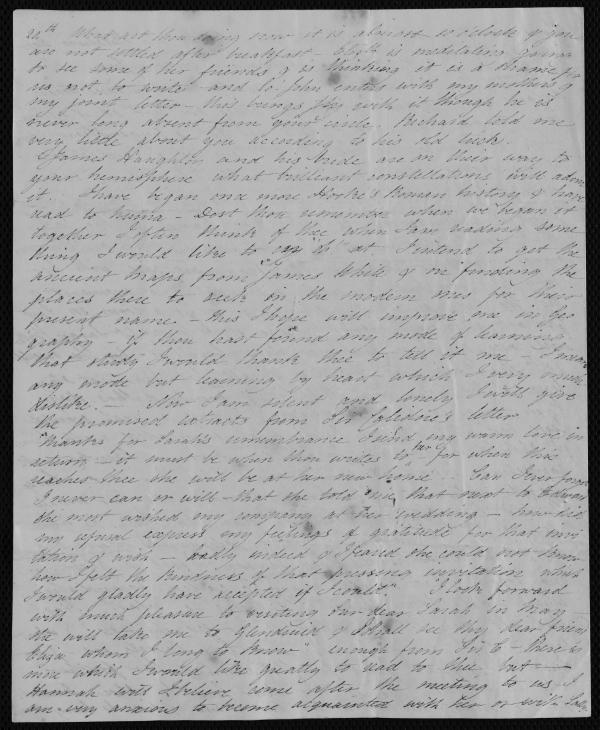 24th What art thou doing now it is almost 10 oClock & you
are not settled after breakfast — Eliz[th] is meditating going
to see some of her friends & is thinking it is a shame for
us not to write — and lo John enters with my mothers &
my joint letter — this brings joy with it though he is
never long absent from your circle. Richard told me
very little about you according to his old luck.
James Haughton and his bride are on their way to
your hemisphere what brilliant constellations will adorn
it. I have began one more Hooke's Roman history & have
read to — Dost thou remember when we began it
together I often think of thee when I am reading some
thing I would like to at I intend to get the
ancient maps from James White & on finding the
places there to seek in the modern ones for their
present name. — this I hope will improve me in Geo
graphy — if thou hast found any mode of learning
that study I would thank thee to tell it me — I mean
any mode but learning by heart which I very much
dislike. — Now I am silent and lonely I will give
the promised extracts from Sir Calidore's letter
"Thanks for Sarah's remembrance I send my warm love in
return — it must be when thou writes to her for when this
reaches thee she will be at her new home" — Can I ever forget
I never can or will — that she told me, that next to Edward
she most wished my company at her wedding — how did
my refusal express my feelings of gratitude for that invi
tation & wish — sadly indeed & I feared she could not know
how I felt the kindness of that pressing invitation which
I would gladly have accepted if I could." I look forward
with much pleasure to visiting our dear Sarah in May —
she will take me to & I shall see thy dear friend
Eliza whom I long to know" enough from Sir C — there is
mine which I would like greatly to read to thee but —
Hannah will I believe come after the meeting to us. I
am very anxious to become acquainted with her or with Sally